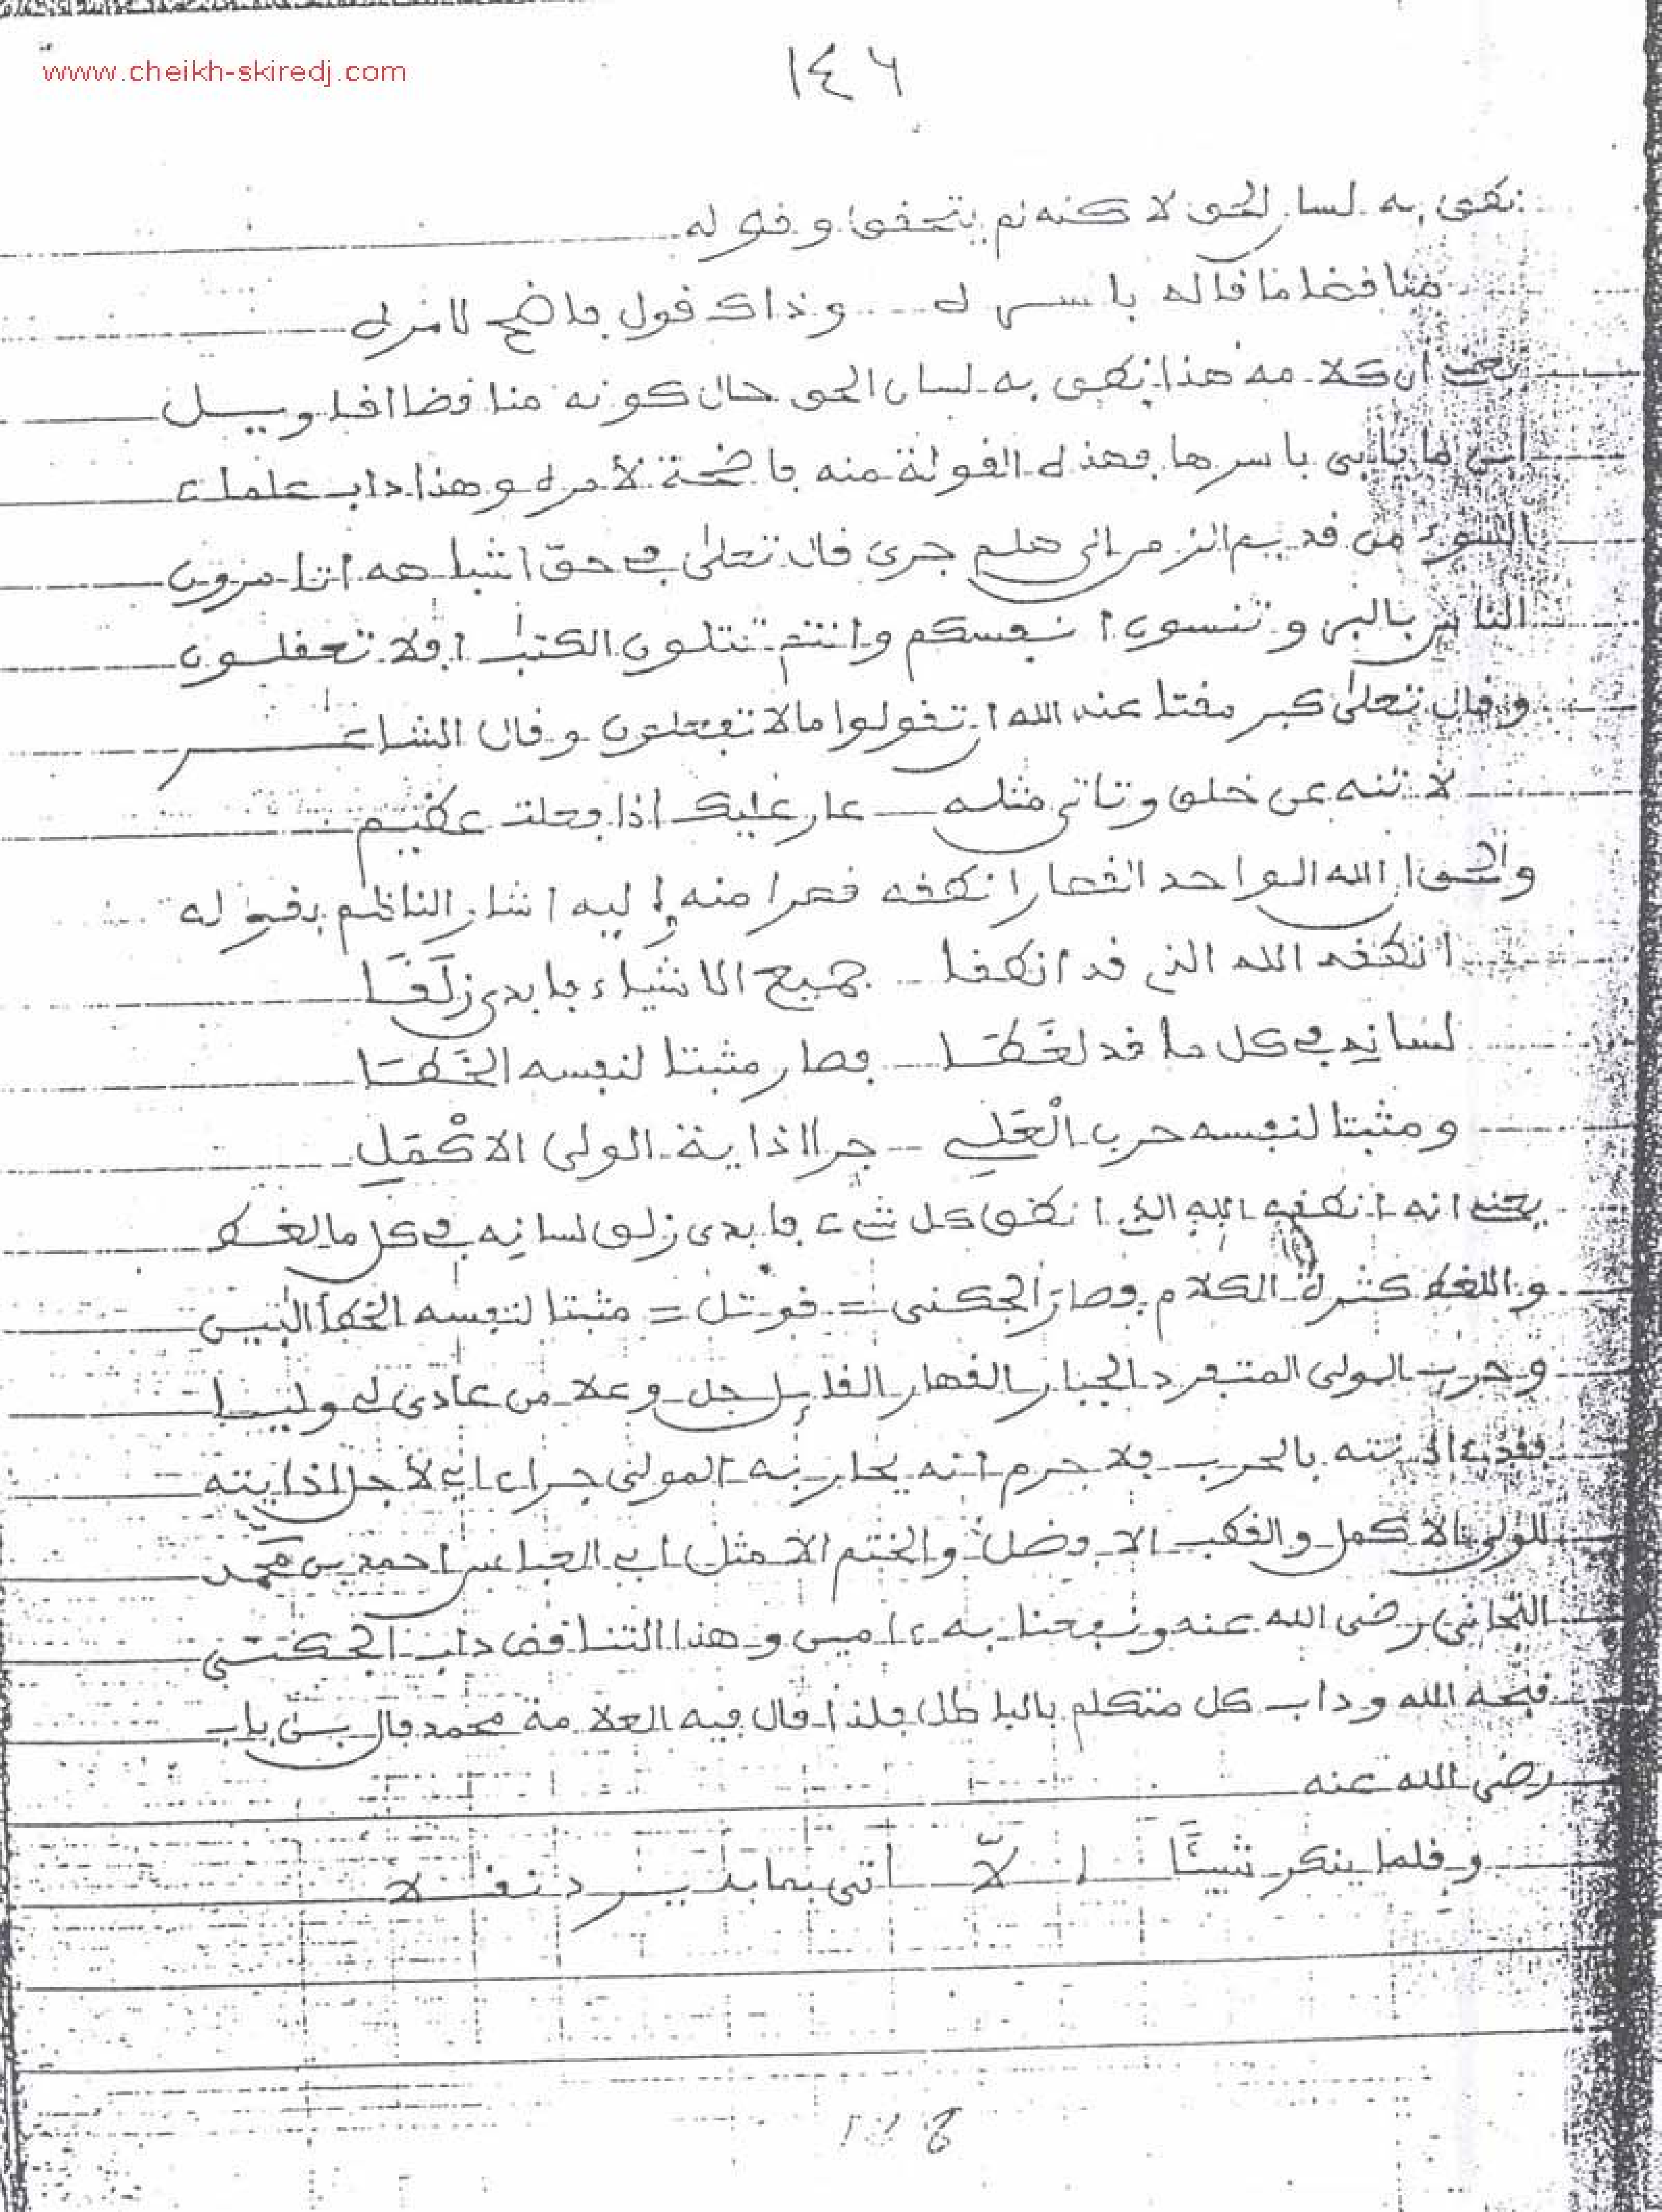 www.cheikh-skiredj.com
١٤٦
نطق به لسان الحق لاكنه لم يتحقق وقوله
مناقضا ما قاله باسره وذاك قول فاضح لامره
ان كلامه هذا نطق به لسان الحق حال كونه مناقضا اقاويل
باسرها فهذه القولة منه فاضحة لأمره وهذا داب علماء
السوء من قديم الزمن الى هلم جرى قال تعلى في حق اشباهه اتامرون
الناس بالبر وتنسون انفسكم وانتم تتلون الكتب افلا تعقلون
وقال تعلى كبر مقتا عند الله ان تقولوا ما لا تفعلون وقال الشاعر
لا تنه عن خلق وتاتي مثله عار عليك اذا فعلت عظيم
والحق ان الله الواحد القهار انطقه قهرا منه وإليه اشار الناظم بقوله
انطقه الله الذي قد انطقا جميع الاشياء فابدى زلَقَا
لسانه في كل ما قد لغَطَا فصار مثبتا لنفسه الخَطَا
ومثبتا لنفسه حرب الْعَلِي جرا اذاية الولي الاكْمَلِ
يعني انه انطقه الله الذي انطق كل شيء فابدى زلق لسانه في كل ما لغط
واللغط كثرة الكلام فصار الجكني = قوتل = مثبتا لنفسه الخطأ البين
وحرب المولى المتفرد الجبار القهار القايل جل وعلا من عادى لي وليا
فقد ءاذنته بالحرب فلا جرم انه يحاربه المولى جراء اي لأجل اذايته
للولي الاكمل والقطب الافضل والختم الامثل ابي العباس احمد بن محمد
التجاني رضى الله عنه ونفعنا به ءامين وهذا التناقض داب الجكني
قبحه الله وداب كل متكلم بالباطل فلذا قال فيه العلامة محمد فال بن باب
رضى الله عنه
وقلما ينكر شيئًا إلّا اتى بما به يرد نقلا